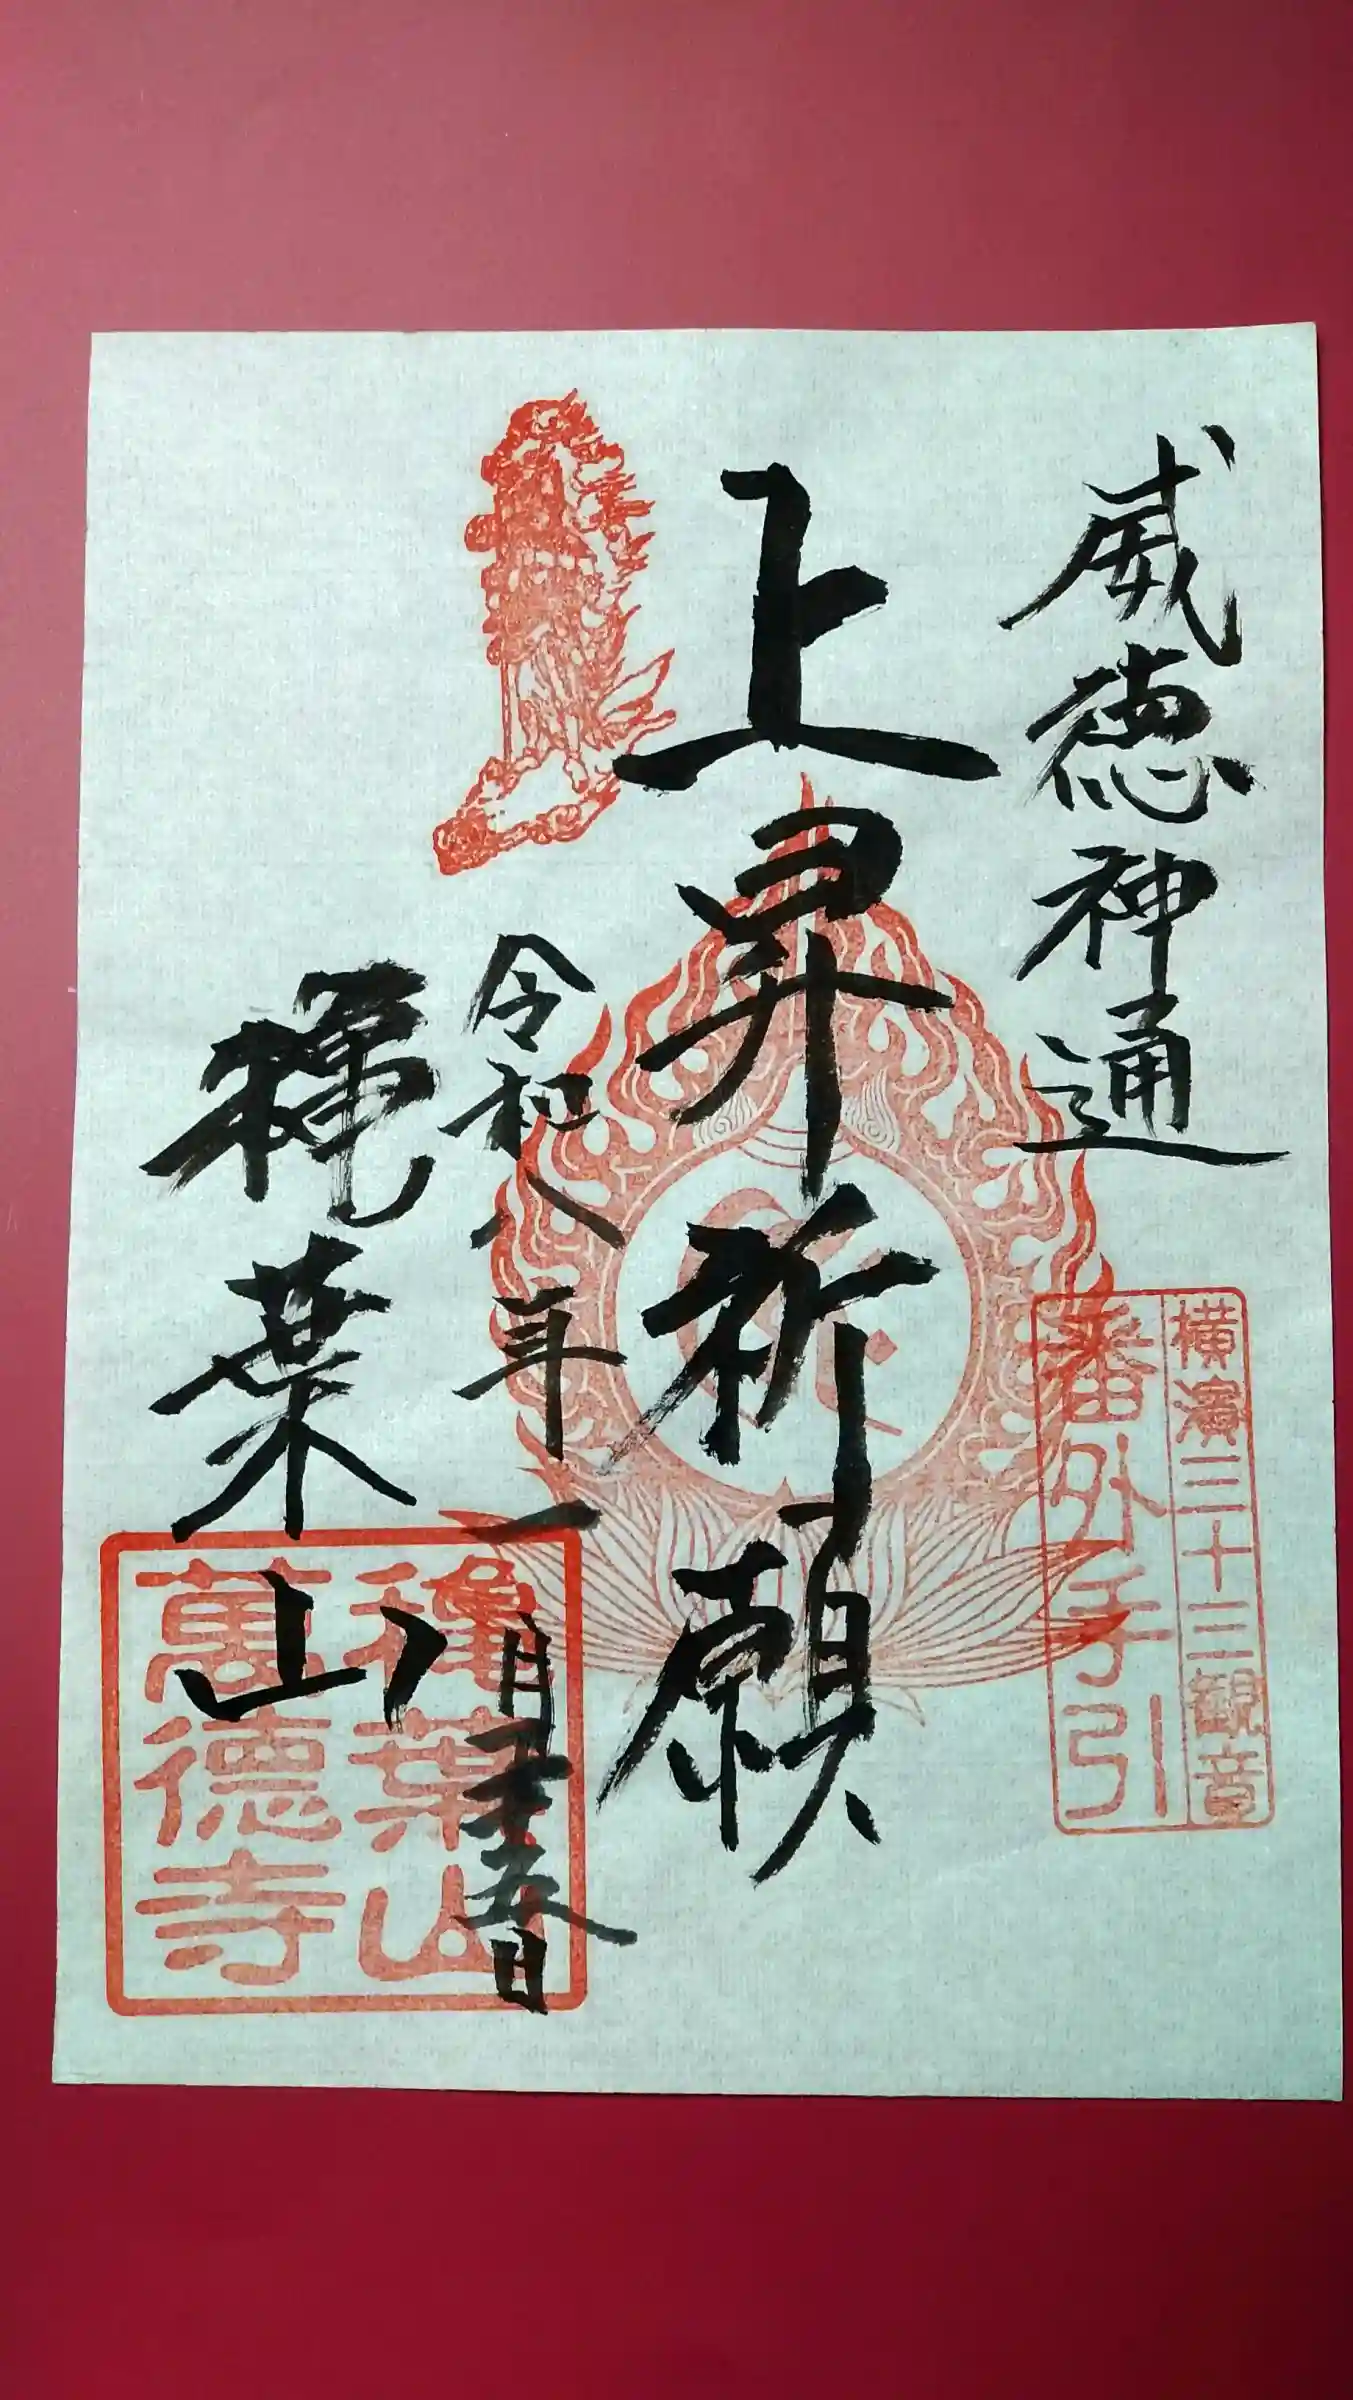 威徳神通
横濱三十三観音
番外手引
上昇祈願
令和八年一月二十五日
穐葉山
穐葉山
萬德寺